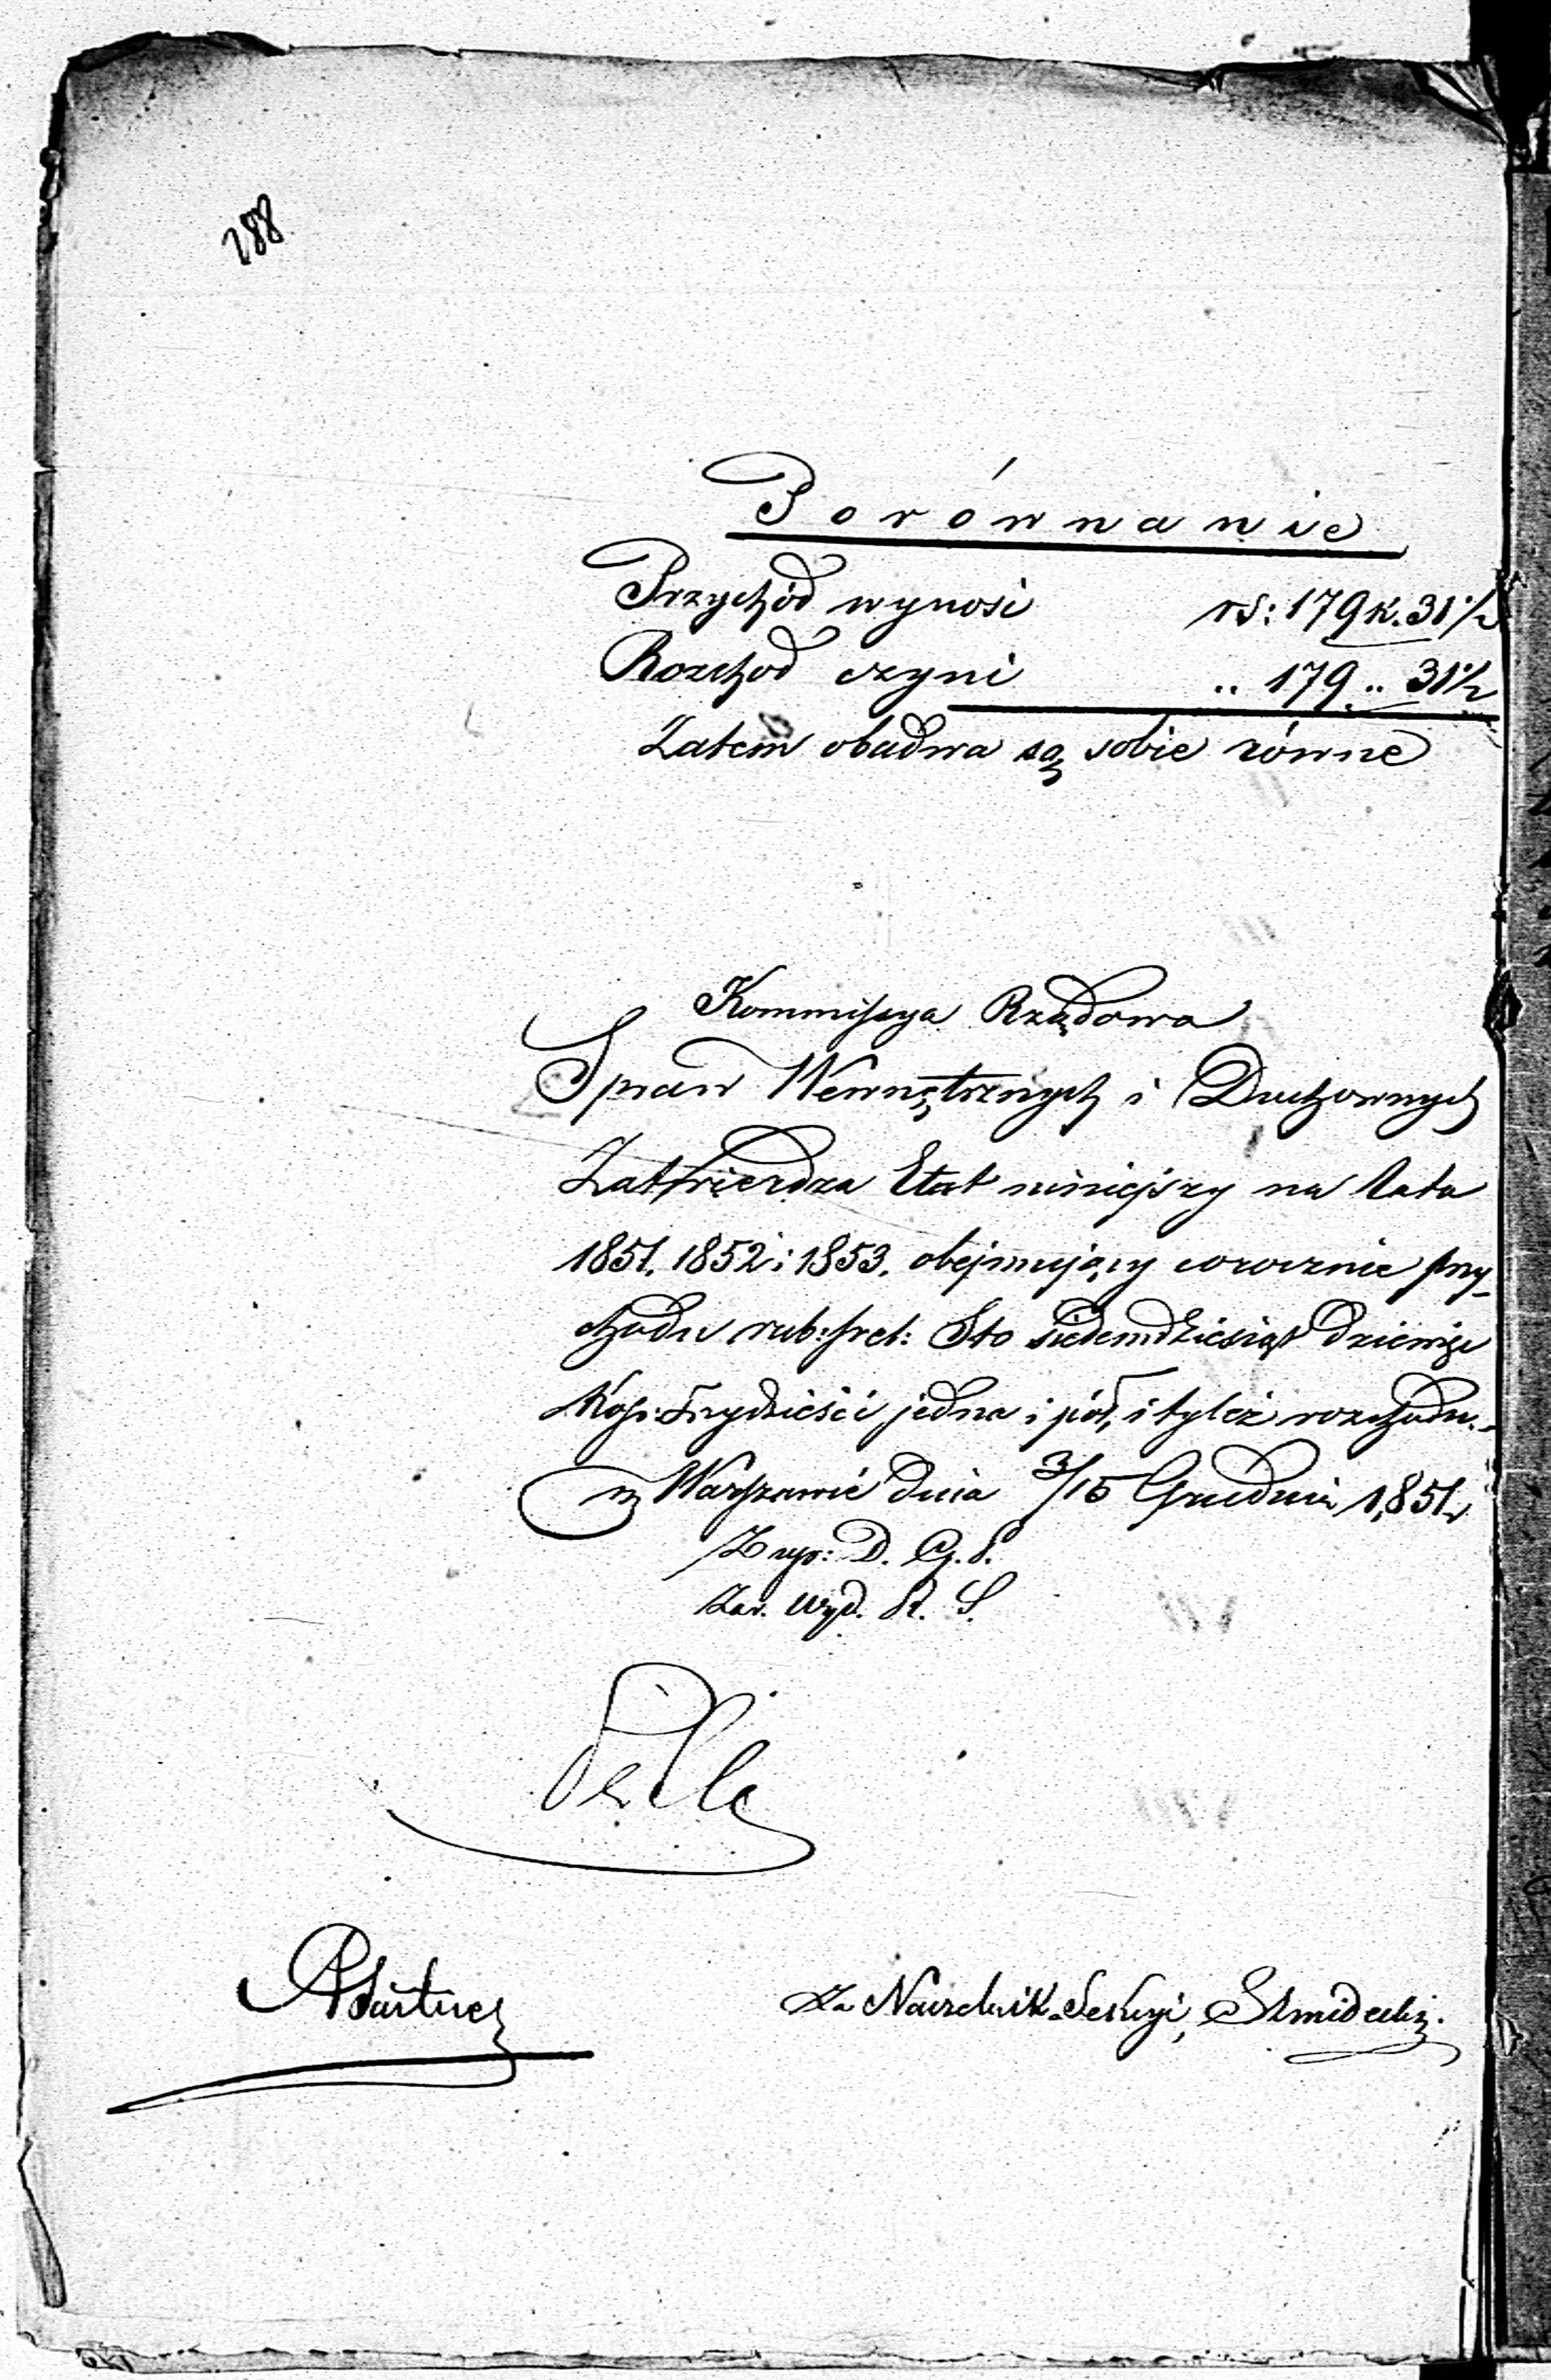 288
Porównanie
Przychód wynosi rs: 179 k. 31 1/2
Rozchod czyni .. 179 .. 31 1/2
Zatem obadwa są sobie równe
Kommissya Rządowa
Spraw Wewnętrznych i Duchownych
Zatwierdza Etat niniejszy na lata
1851. 1852 i 1853. obejmujący corocznie przy-
chodu rub: sreb: Sto siedemdziesiąt dziewięć
Kop: Trzydzieści jedna i pół, i tyleż rozchodu.
w Warszawie dnia 3/15 Grudnia 1851 r
Z up: D. G. S.
Zar. Wyd. S.
Za Naczelnik Sekcyi,